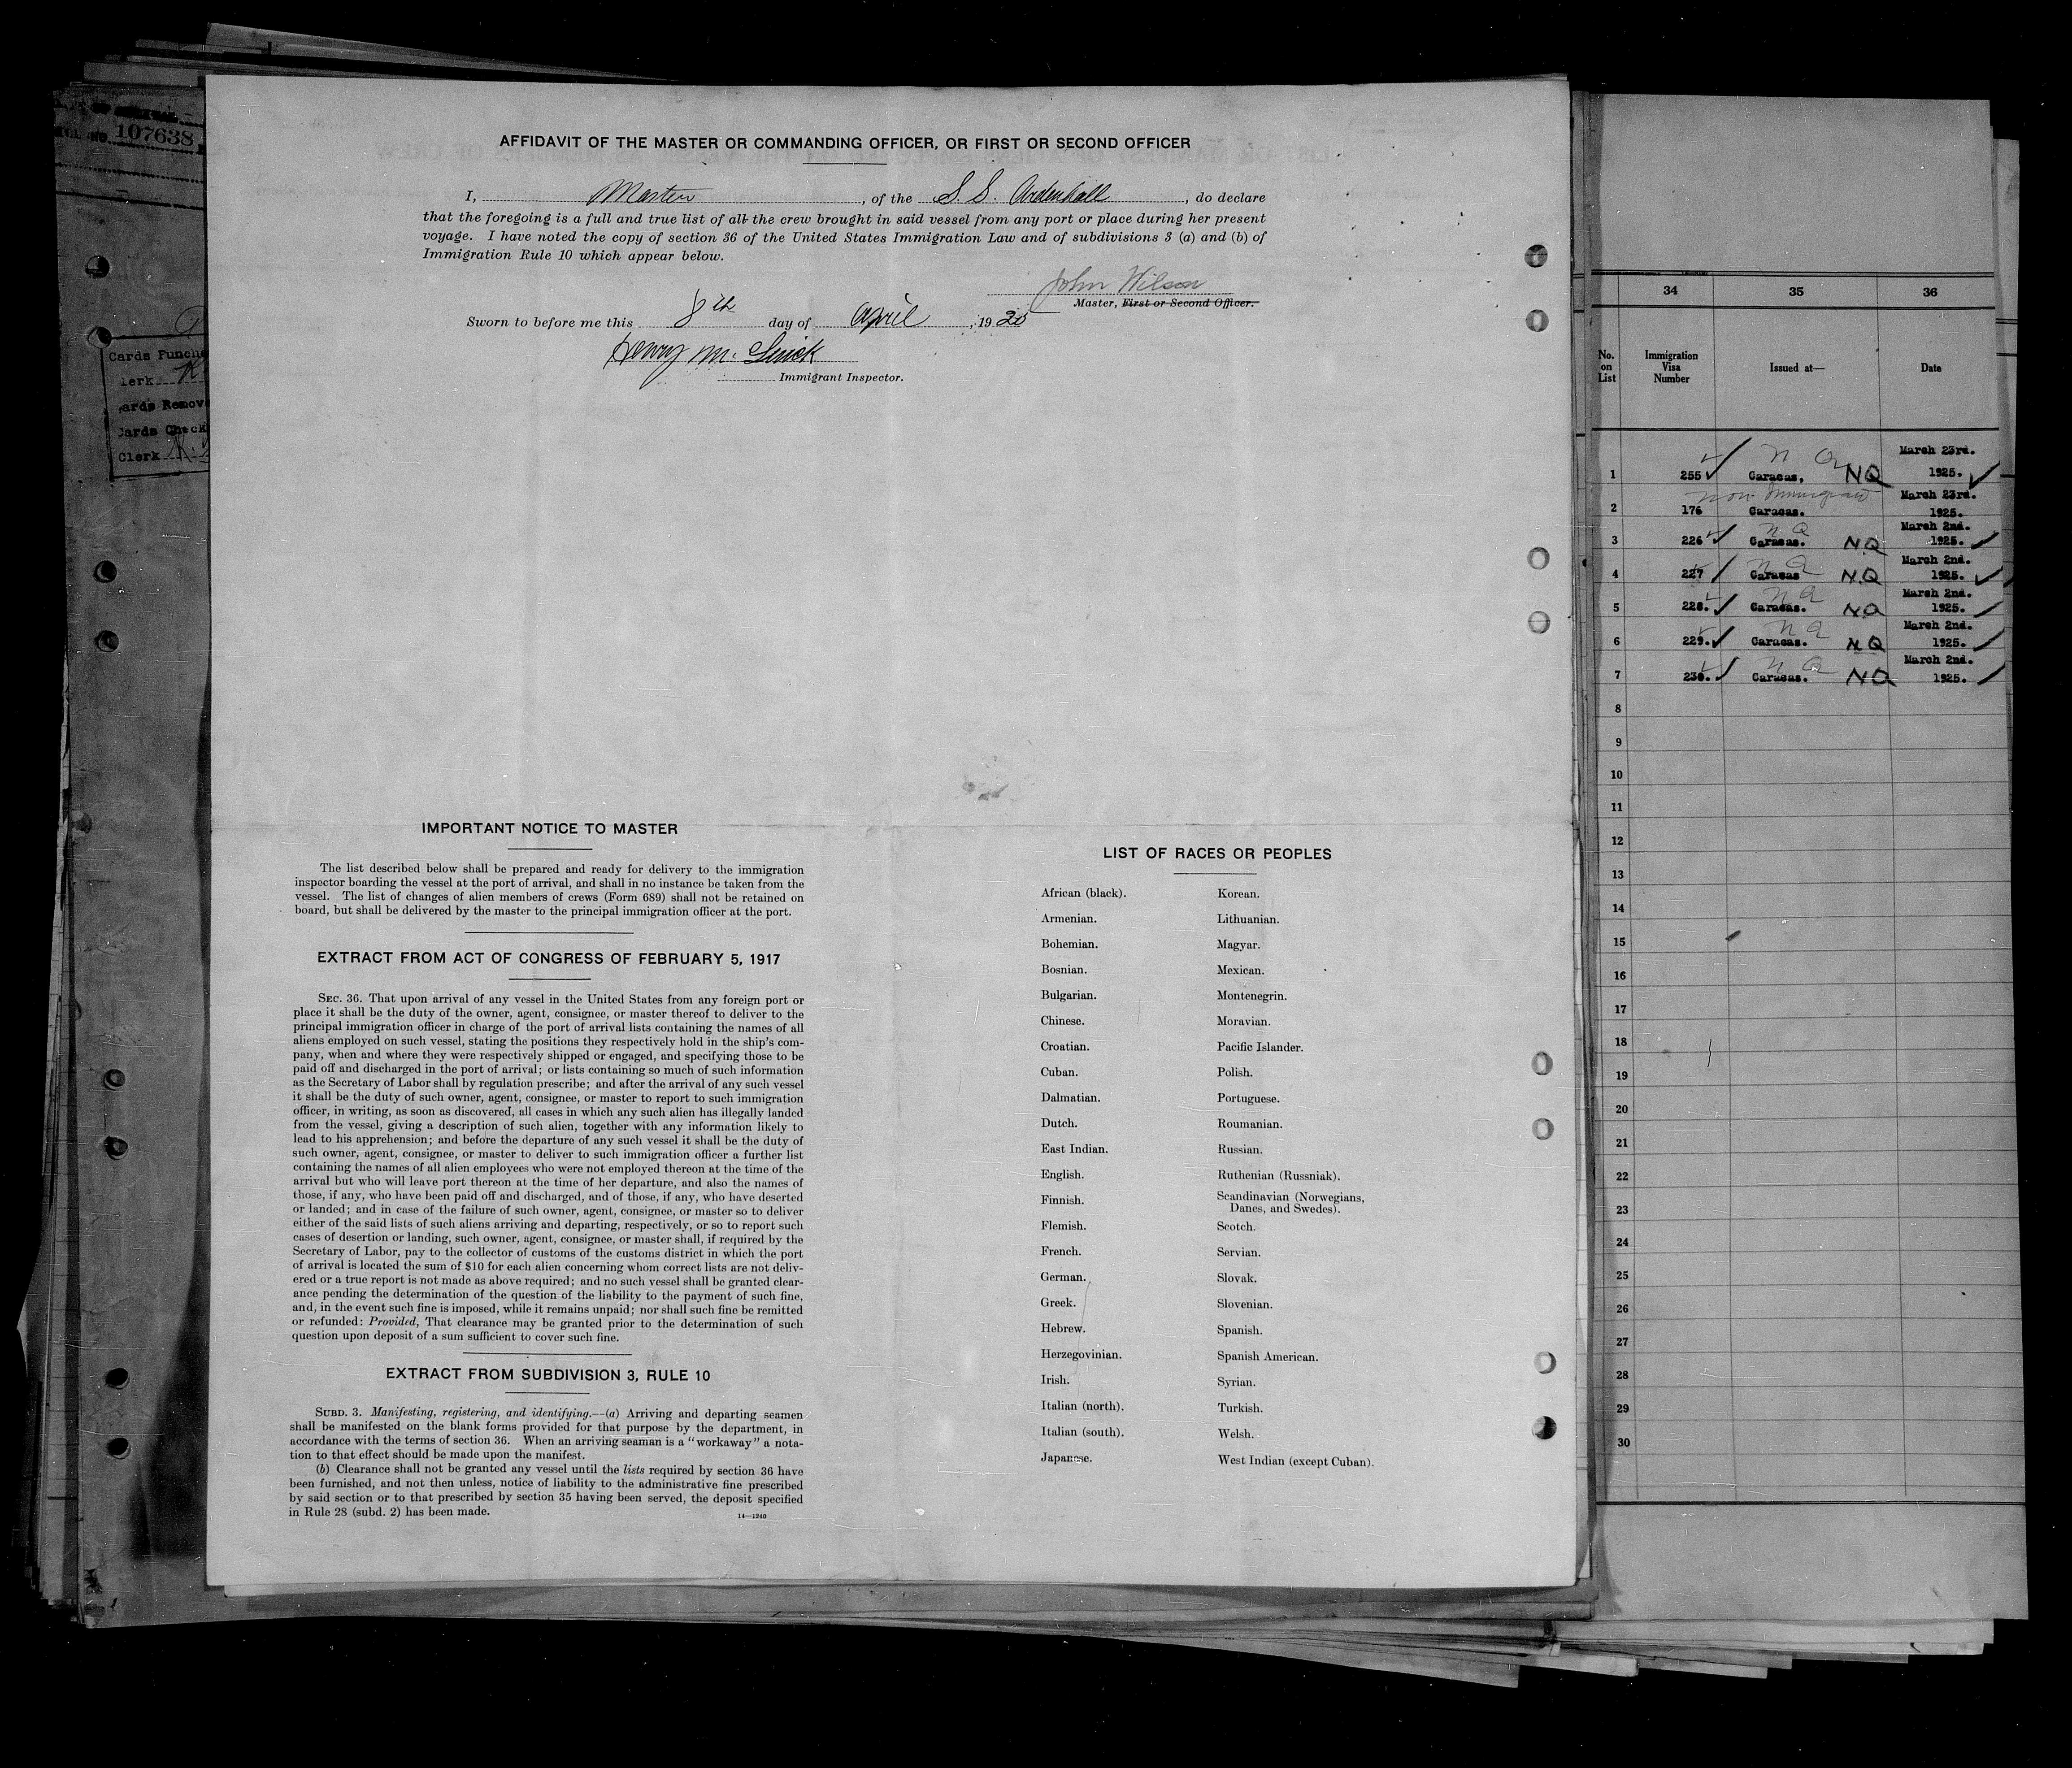 107638
AFFIDAVIT OF THE MASTER OR COMMANDING OFFICER, OR FIRST OR SECOND OFFICER
I, Master, of the S.S. Ardenhall, do declare
that the foregoing is a full and true list of all the crew brought in said vessel from any port or place during her present
voyage. I have noted the copy of section 36 of the United States Immigration Law and of subdivisions 3 (a) and (b) of
Immigration Rule 10 which appear below.
John Wilson
Master, First or Second Officer.
Sworn to before me this 8th day of April, 19
Henry M.
Immigrant Inspector.
Cards Punche
lerk K
ards Remov
Cards Check
Clerk
IMPORTANT NOTICE TO MASTER
The list described below shall be prepared and ready for delivery to the immigration
inspector boarding the vessel at the port of arrival, and shall in no instance be taken from the
vessel. The list of changes of alien members of crews (Form 689) shall not be retained on
board, but shall be delivered by the master to the principal immigration officer at the port.
EXTRACT FROM ACT OF CONGRESS OF FEBRUARY 5, 1917
SEC. 36. That upon arrival of any vessel in the United States from any foreign port or
place it shall be the duty of the owner, agent, consignee, or master thereof to deliver to the
principal immigration officer in charge of the port of arrival lists containing the names of all
aliens employed on such vessel, stating the positions they respectively hold in the ship's com-
pany, when and where they were respectively shipped or engaged, and specifying those to be
paid off and discharged in the port of arrival; or lists containing so much of such information
as the Secretary of Labor shall by regulation prescribe; and after the arrival of any such vessel
it shall be the duty of such owner, agent, consignee, or master to report to such immigration
officer, in writing, as soon as discovered, all cases in which any such alien has illegally landed
from the vessel, giving a description of such alien, together with any information likely to
lead to his apprehension; and before the departure of any such vessel it shall be the duty of
such owner, agent, consignee, or master to deliver to such immigration officer a further list
containing the names of all alien employees who were not employed thereon at the time of the
arrival but who will leave port thereon at the time of her departure, and also the names of
those, if any, who have been paid off and discharged, and of those, if any, who have deserted
or landed; and in case of the failure of such owner, agent, consignee, or master so to deliver
either of the said lists of such aliens arriving and departing, respectively, or so to report such
cases of desertion or landing, such owner, agent, consignee, or master shall, if required by the
Secretary of Labor, pay to the collector of customs of the customs district in which the port
of arrival is located the sum of $10 for each alien concerning whom correct lists are not deliv-
ered or a true report is not made as above required; and no such vessel shall be granted clear-
ance pending the determination of the question of the liability to the payment of such fine,
and, in the event such fine is imposed, while it remains unpaid; nor shall such fine be remitted
or refunded: Provided, That clearance may be granted prior to the determination of such
question upon deposit of a sum sufficient to cover such fine.
EXTRACT FROM SUBDIVISION 3, RULE 10
SUBD. 3. Manifesting, registering, and identifying.—(a) Arriving and departing seamen
shall be manifested on the blank forms provided for that purpose by the department, in
accordance with the terms of section 36. When an arriving seaman is a "workaway" a nota-
tion to that effect should be made upon the manifest.
(b) Clearance shall not be granted any vessel until the lists required by section 36 have
been furnished, and not then unless, notice of liability to the administrative fine prescribed
by said section or to that prescribed by section 35 having been served, the deposit specified
in Rule 28 (subd. 2) has been made.
14—1240
LIST OF RACES OR PEOPLES
African (black). Korean.
Armenian. Lithuanian.
Bohemian. Magyar.
Bosnian. Mexican.
Bulgarian. Montenegrin.
Chinese. Moravian.
Croatian. Pacific Islander.
Cuban. Polish.
Dalmatian. Portuguese.
Dutch. Roumanian.
East Indian. Russian.
English. Ruthenian (Russniak).
Finnish. Scandinavian (Norwegians,
Danes, and Swedes).
Flemish. Scotch.
French. Servian.
German. Slovak.
Greek. Slovenian.
Hebrew. Spanish.
Herzegovinian. Spanish American.
Irish. Syrian.
Italian (north). Turkish.
Italian (south). Welsh.
Japanese. West Indian (except Cuban).
34 35 36
No. on List Immigration Visa Number Issued at— Date
1 255 Caracas. N Q NQ March 23rd. 1925.
2 176 Non Immigrant Caracas. March 23rd. 1925.
3 226 Caracas. N Q NQ March 2nd. 1925.
4 227 Caracas N Q N.Q March 2nd. 1925.
5 228. Caracas. N Q NQ March 2nd. 1925.
6 229. Caracas. N Q NQ March 2nd. 1925.
7 230. Caracas. N Q NQ March 2nd. 1925.
8
9
10
11
12
13
14
15
16
17
18
19
20
21
22
23
24
25
26
27
28
29
30